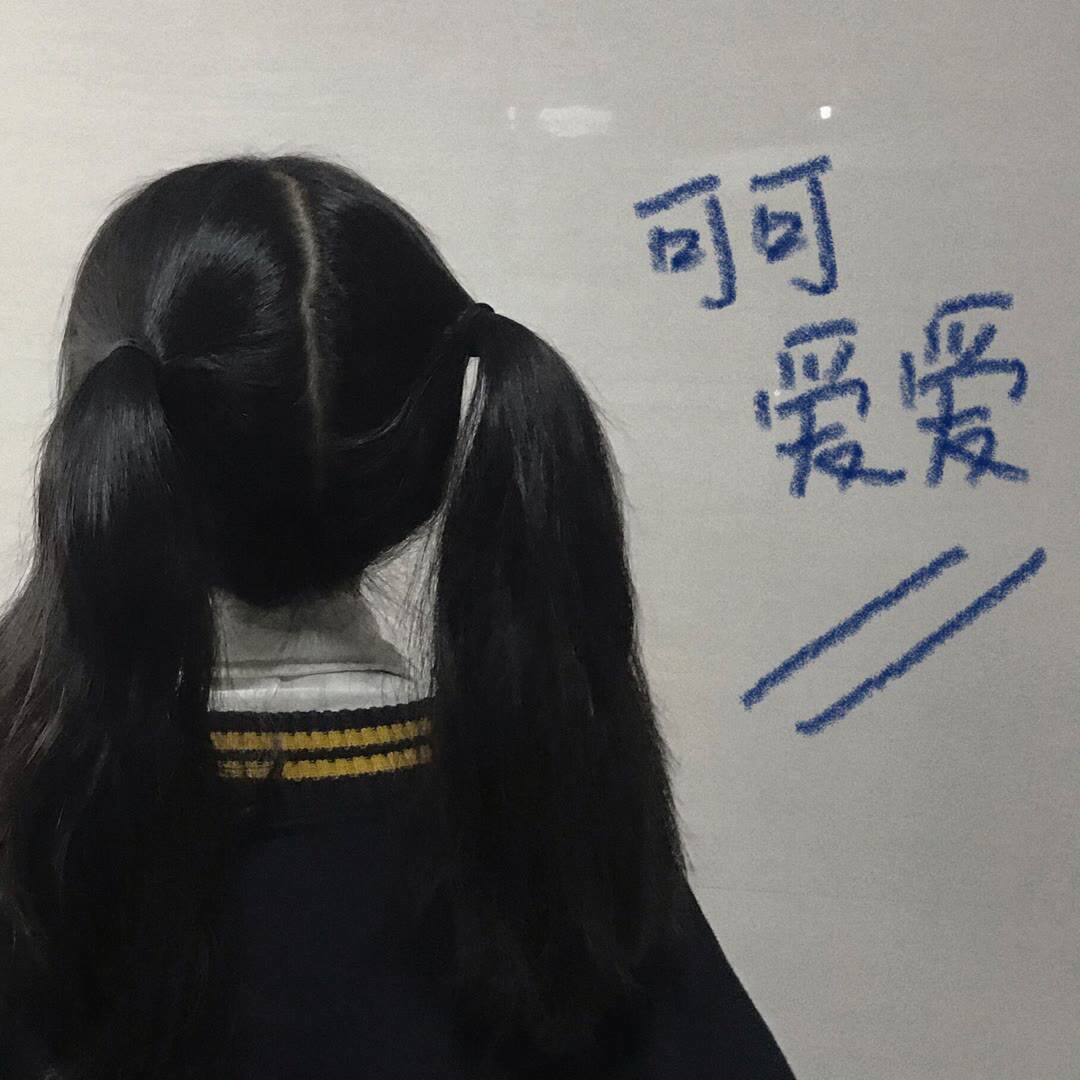 可可
爱爱